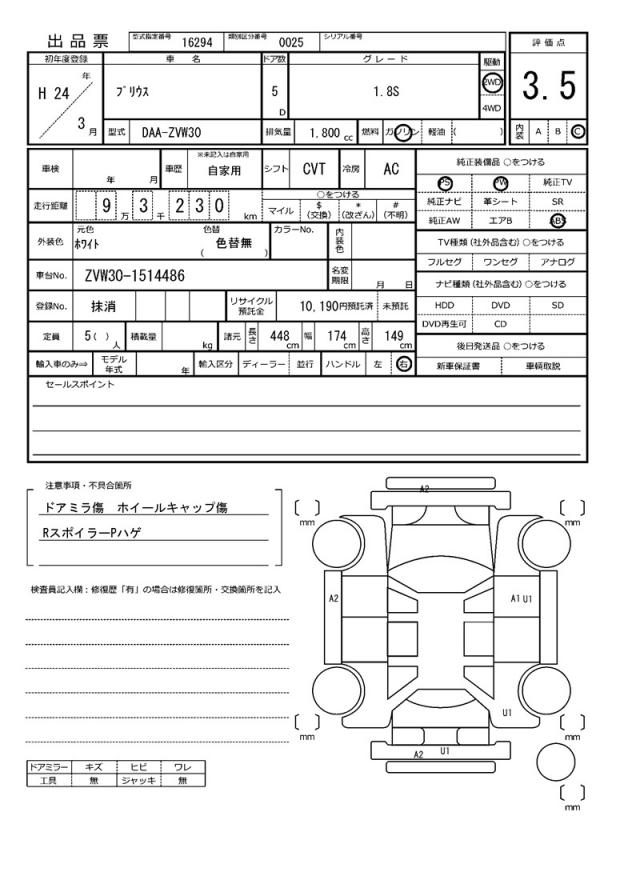 出品票 型式指定番号 16294 類別区分番号 0025 シリアル番号
初年度登録 車名 ドア数 グレード 駆動 評価点
H 24 年 3 月 プリウス 5 D 1.8S 2WD 4WD 3.5
型式 DAA-ZVW30 排気量 1,800 cc 燃料 ガソリン 軽油 ( ) 内装 A B C
車検 年 月 車歴 ※未記入は自家用 自家用 シフト CVT 冷房 AC 純正装備品 ○をつける
PS PW 純正TV
走行距離 9 万 3 千 2 3 0 km ○をつける 純正ナビ 革シート SR
マイル $(交換) *(改ざん) #(不明) 純正AW エアB ABS
外装色 元色 ホワイト 色替 ( 色替無 ) カラーNo. 内装色 TV種類(社外品含む)○をつける
フルセグ ワンセグ アナログ
車台No. ZVW30-1514486 名変期限 月 日 ナビ種類(社外品含む)○をつける
登録No. 抹消 リサイクル預託金 10,190円預託済 未預託 HDD DVD SD
DVD再生可 CD
定員 5( ) 人 積載量 kg 諸元 長さ 448 cm 幅 174 cm 高さ 149 cm 後日発送品 ○をつける
輸入車のみ⇒ モデル年式 年 輸入区分 ディーラー 並行 ハンドル 左 右 新車保証書 車輌取説
セールスポイント
注意事項・不具合箇所
ドアミラ傷 ホイールキャップ傷
RスポイラーPハゲ
検査員記入欄:修復歴「有」の場合は修復箇所・交換箇所を記入
ドアミラー キズ ヒビ ワレ
工具 無 ジャッキ 無
A2
mm mm
A2 A1 U1
U1
mm mm
A2 U1
mm